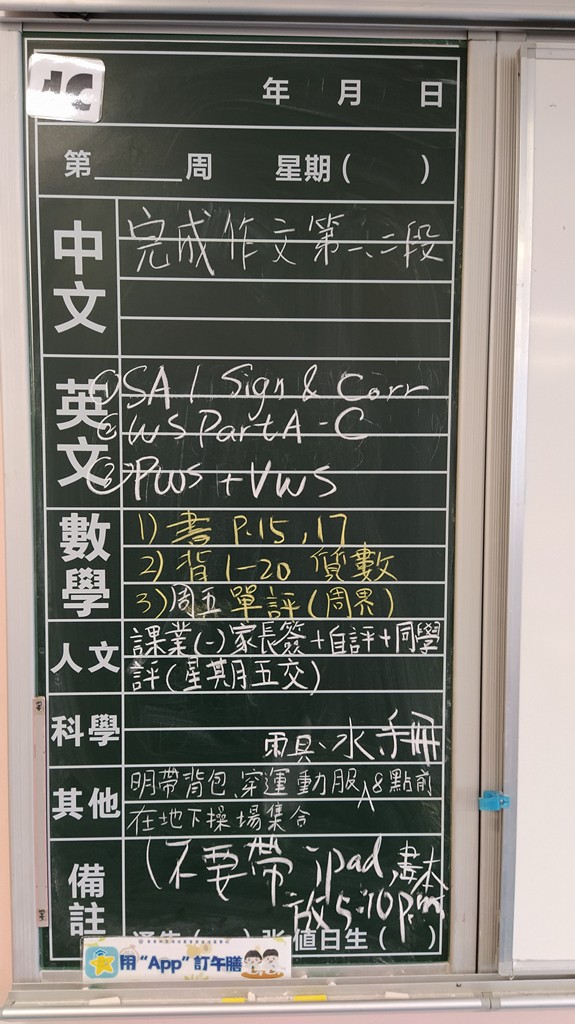 年 月 日
第______周 星期( )
中文
完成作文第一、二段
英文
①SA1 Sign & Corr
②WS Part A-C
③PWS + VWS
數學
1) 書 P.15, 17
2) 背 1-20 質數
3) 周五 單評(周界)
人文
課業(一)家長簽+自評+同學
評(星期五交)
科學
雨具、水、手冊
其他
明帶背包、穿運動服^8點前
在地下操場集合
備註
(不要帶ipad,書本
放5:10p.m
值日生( )
用“App”訂午膳